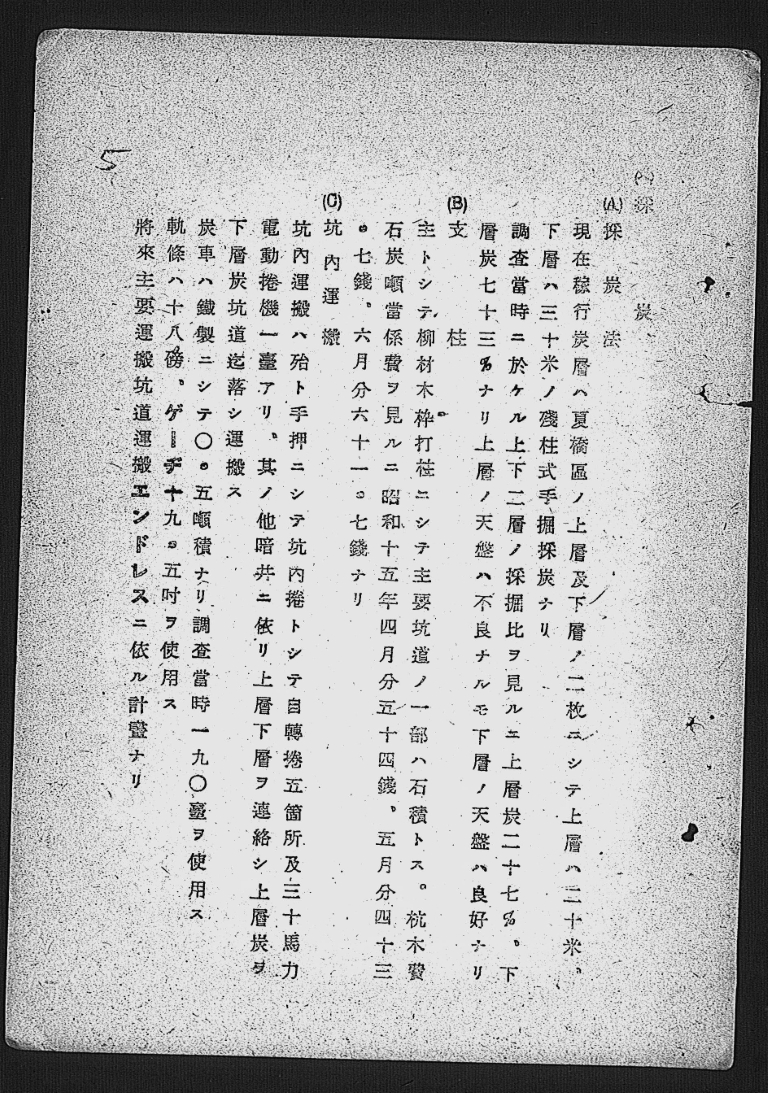 5
採炭
(A) 採炭法
現在稼行炭層ハ夏橋區ノ上層及下層ノ二枚ニシテ上層ハ二十米、
下層ハ三十米ノ殘柱式手掘採炭ナリ
調査當時ニ於ケル上下二層ノ採掘比ヲ見ルニ上層炭二十七%。下
層炭七十三%ナリ上層ノ天盤ハ不良ナルモ下層ノ天盤ハ良好ナリ
(B) 支柱
主トシテ柳材木枠打柱ニシテ主要坑道ノ一部ハ石積トス。杭木費
石炭噸當係費ヲ見ルニ昭和十五年四月分五十四錢、五月分四十三
・七錢、六月分六十一・七錢ナリ
(C) 坑內運搬
坑內運搬ハ殆ト手押ニシテ坑內捲トシテ自轉捲五箇所及三十馬力
電動捲機一臺アリ、其ノ他暗井ニ依リ上層下層ヲ連絡シ上層炭ヲ
下層炭坑道迄落シ運搬ス
炭車ハ鐵製ニシテ〇・五噸積ナリ調査當時一九〇臺ヲ使用ス
軌條ハ十八磅、ゲーヂ十九・五吋ヲ使用ス
將來主要運搬坑道運搬エンドレスニ依ル計畫ナリ